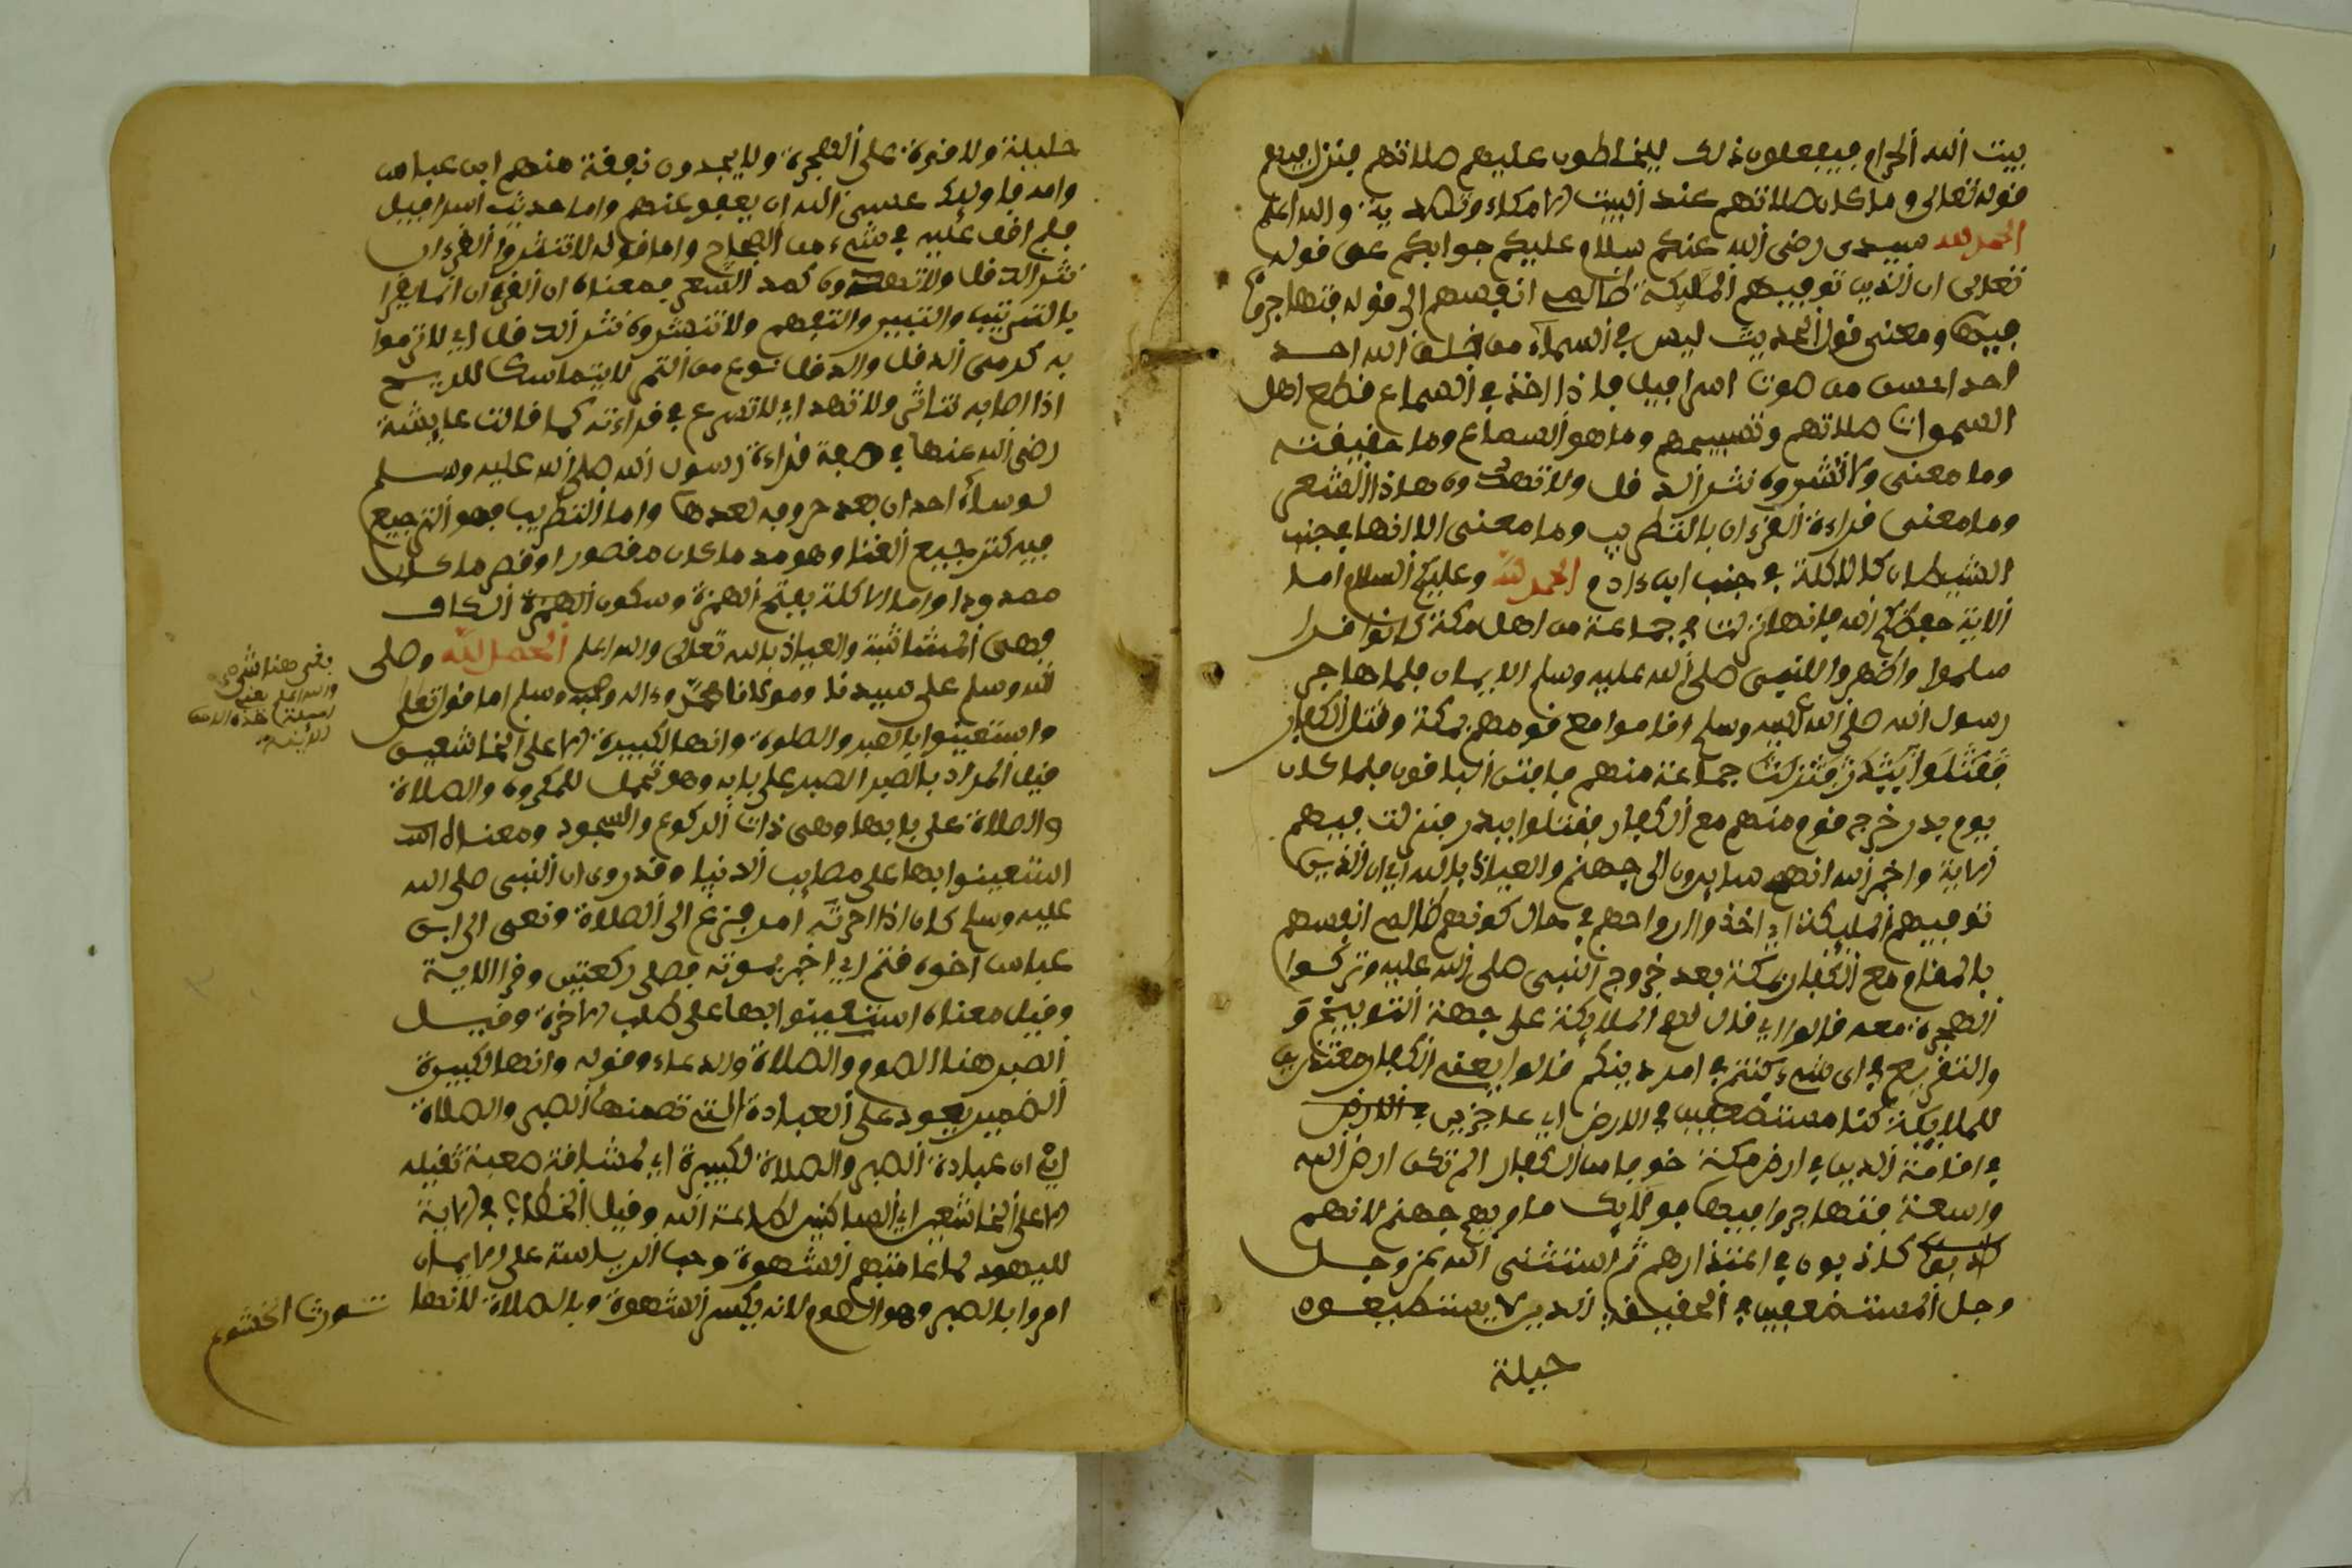 بيت الله الحرام فيفعلون ذلك ليخلطون عليهم صلاتهم فنزل فيهم
قوله تعالى وما كان صلاتهم عند البيت الا مكاء وتصدية والله اعلم
الحمد لله سيدى رضى الله عنكم سلام عليكم جوابكم عن قوله
تعلى ان الذين توفيهم الملئكة ظالمى انفسهم الى قوله فتهاجروا
فيها ومعنى قول الحديث ليس في السماء من خلق الله احد
احد احسن من صوت اسرافيل فاذا اخذ في السماع قطع اهل
السموات صلاتهم وتسبيحهم وما هو السماع وما حقيقته
وما معنى ولا تنثروه نثر الدقل ولا تهذوه هذا الشعر
وما معنى قراءة القرءان بالتطريب وما معنى الا انها في جنب
الشيطان كالاكلة في جنب ابن ءادم الحمد لله وعليكم السلام اما
الاية حفظكم الله فانها نزلت في جماعة من اهل مكة كانوا قد ا
سلموا واظهروا للنبى صلى الله عليه وسلم الايمان فلما هاجر
رسول الله صلى الله عليه وسلم اقاموا مع قومهم بمكة وفتن الكفار
جماعة منهم فافتتن الباقون فلما كان
يوم بدر خرج قوم منهم مع الكفار فقتلوا ببدر فنزلت فيهم
الاية واخبر الله انهم سايرون الى جهنم والعياذ بالله اي ان الذين
توفيهم المليكة اي اخذوا ارواحهم في حال كونهم ظالمى انفسهم
بالمقام مع الكفار بمكة بعد خروج النبى صلى الله عليه وتركوا
الهجرة معه قالوا اي قال لهم الملايكة على جهة التوبيخ و
والتقريع في اي شيء كنتم في امر دينكم قالوا يعنى الكفار معتذرين
للملايكة كنا مستضعفين في الارض اي عاجزين في الارض
في اقامة الدين في ارض مكة خوفا من الكفار الم تكن ارض الله
واسعة فتهاجروا فيها فأوليك ماويهم جهنم لانهم
كاذبون في اعتذارهم ثم استثنى الله عز وجل
وجل المستضعفين في الحقيقة الذين لا يستطيعون
حيلة
حليلة ولا قوة على الهجرة ولا يجدون نفقة منهم ابن عباس
وامه فاوليك عسى الله ان يعفو عنهم واما حديث اسرافيل
فلم اقف عليه في شيء من الصحاح واما قوله لا تنثروا القرءان
نثر الدقل ولا تهذوه كهذ الشعر فمعناه ان القرءان انما يقرا
بالترتيب والتبيين والتفهم ولا تنثروه نثر الدقل اي لا ترموا
به كرمى الدقل والدقل نوع من التمر لا يتماسك للريح
اذا اصابه تناثر ولا تهذ اي لا تسرع في قراءته كما قالت عايشة
رضى الله عنها في صفة قراءة رسول الله صلى الله عليه وسلم
لو سأله احد ان يعد حروفه لعدها واما التطريب فهو الترجيع
فيه كترجيع الغنا وهو مد ما كان مقصورا وقصر ما كان
ممدودا واما الاكلة بفتح الهمزة وسكون الهمزة الكاف
فهى والعياذ بالله تعالى والله اعلم الحمد لله وصلى
الله وسلم على سيدنا ومولانا محمد وءاله وصحبه وسلم اما قوله تعلى
واستعينوا بالصبر والصلوة وانها لكبيرة الا على الخاشعين
فقيل المراد بالصبر الصبر على بابه وهو تحمل للمكروه والصلاة
والصلاة على بابها وهى ذات الركوع والسجود ومعناه
استعينوا بها على مصايب الدنيا وقد روى ان النبى صلى الله
عليه وسلم كان اذا احزنه امر فزع الى الصلاة ونعى الى ابن
عباس اخوه قثم اي اخبر بموته فصلى ركعتين وقرا الاية
وقيل معناه استعينوا بها على طلب الاخرة وقيل
الصبر هنا الصوم والصلاة والدعاء وقوله وانها لكبيرة
الضمير يعود على العبادة التى تضمنها الصبر والصلاة
اي ان عبادة الصبر والصلاة لكبيرة اي لشاقة صعبة ثقيله
الا على الخاشعين اي الساكنين لطاعة الله وقيل الخطاب في الاية
لليهود لما عاقتهم الشهوة وحب الرياسة على الايمان
امروا بالصبر وهو الصوم لانه يكسر الشهوة وبالصلاة لانها
تورث الخشوع
بقى هنا شىء
والله اعلم يعنى